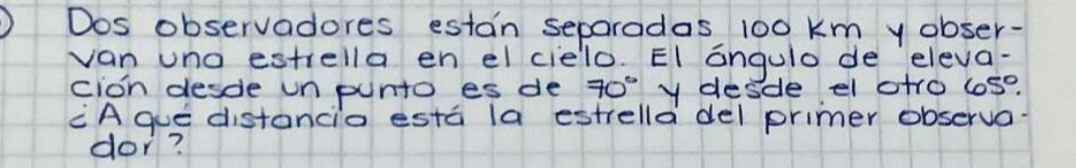 Dos observadores están separadas 100 Km y obser-
van una estrella en el cielo. El ángulo de eleva-
ción desde un punto es de 70° y desde el otro 65°.
¿A qué distancia está la estrella del primer observa-
dor?